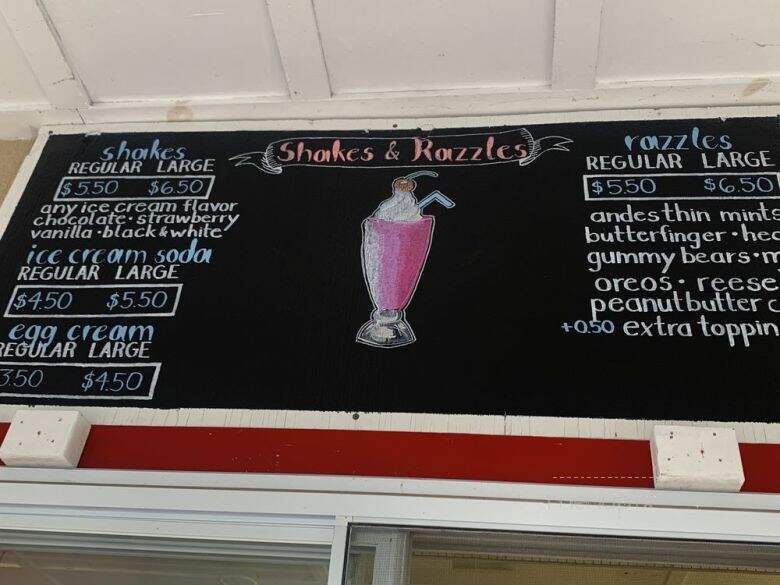 Shakes & Razzles
shakes
REGULAR LARGE
$5.50 $6.50
any ice cream flavor
chocolate • strawberry
vanilla • black & white
ice cream soda
REGULAR LARGE
$4.50 $5.50
egg cream
REGULAR LARGE
3.50 $4.50
razzles
REGULAR LARGE
$5.50 $6.50
andes thin mints
butterfinger •
gummy bears •
oreos • reese
peanut butter
+0.50 extra toppin